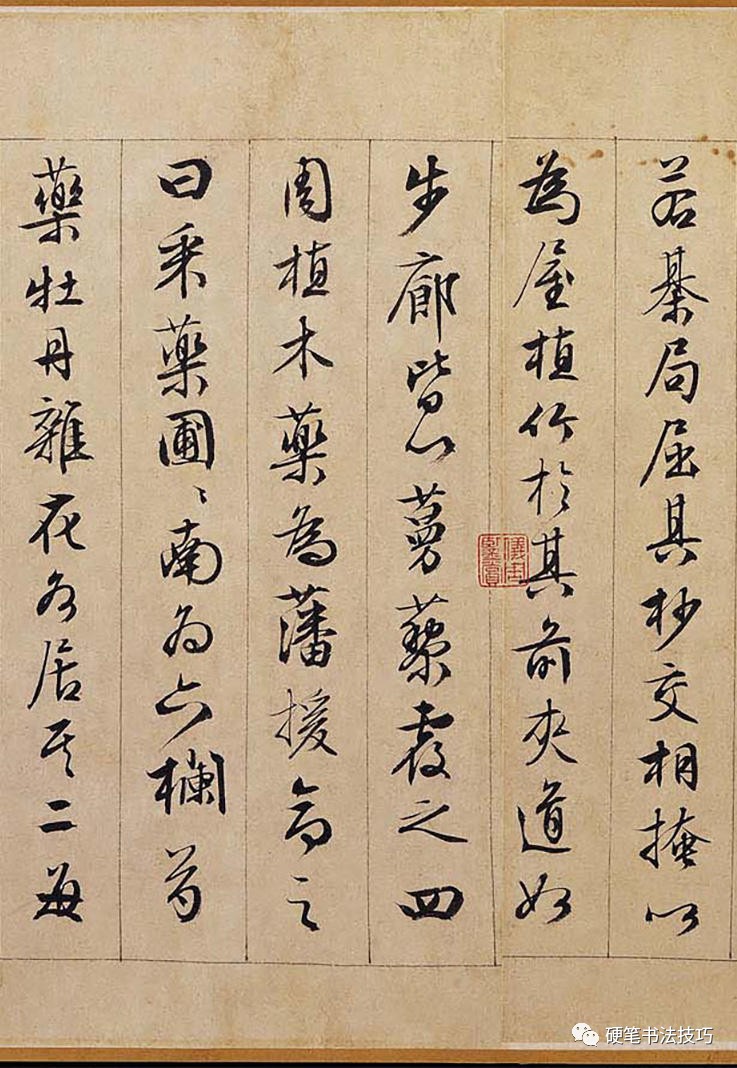 若棊局屈其杪交相掩以
為屋植竹於其前夾道如
步廊皆以蔓藥覆之四
周植木藥為藩援命之
曰采藥圃〻南為六欄芍
藥牡丹雜花各居其二每
儀周鑒賞
硬笔书法技巧